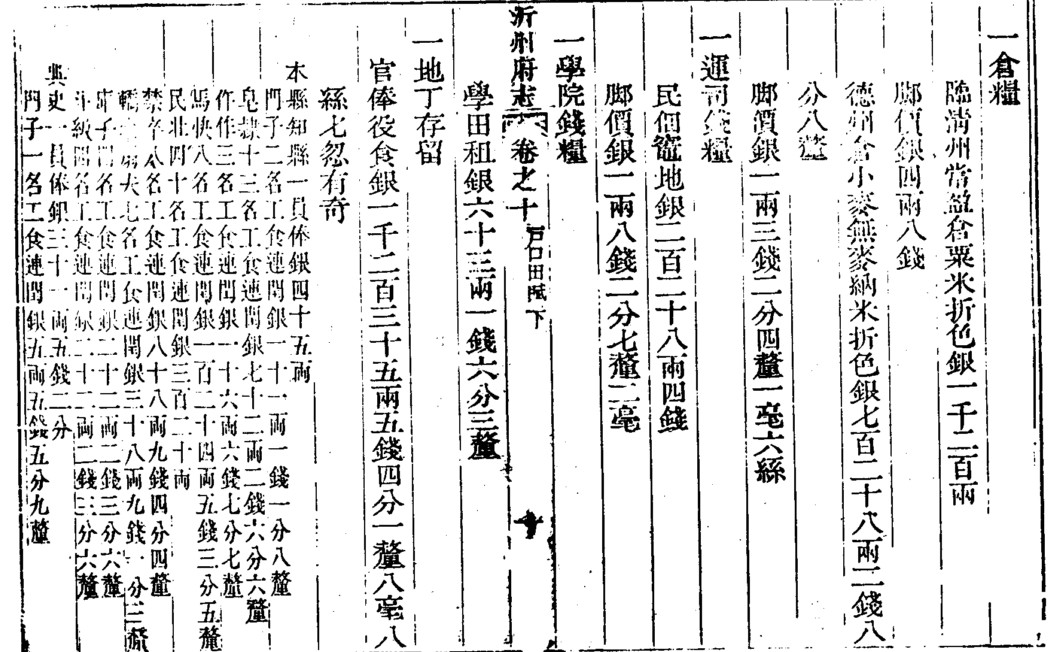 一倉糧
臨淸州常盈倉粟米折色銀一千二百兩
脚價銀四兩八錢
德州倉小麥無麥納米折色銀七百二十八兩二錢八
分八釐
脚價銀一兩三錢二分四釐一毫六絲
一運司錢糧
民佃竈地銀二百二十八兩四錢
脚價銀一兩八錢二分七釐二毫
一學院錢糧
學田租銀六十三兩一錢六分三釐
沂州府志 卷之十 戶口田賦下 十
一地丁存留
官俸役食銀一千二百三十五兩五錢四分一釐八毫八
絲七忽有奇
本縣知縣一員俸銀四十五兩
門子二名工食連閏銀一十一兩一錢一分八釐
皂隸十三名工食連閏銀七十二兩二錢六分六釐
仵作三名工食連閏銀一十六兩六錢七分七釐
馬快八名工食連閏銀一百二十四兩五錢三分五釐
民壯四十名工食連閏銀三百二十兩
禁卒八名工食連閏銀八十八兩九錢四分四釐
轎 扇夫七名工食連閏銀三十八兩九錢一分三釐
庫子四名工食連閏銀二十二兩二錢三分六釐
斗級四名工食連閏銀二十二兩二錢三分六釐
典史一員俸銀三十一兩五錢二分
門子一名工食連閏銀五兩五錢五分九釐